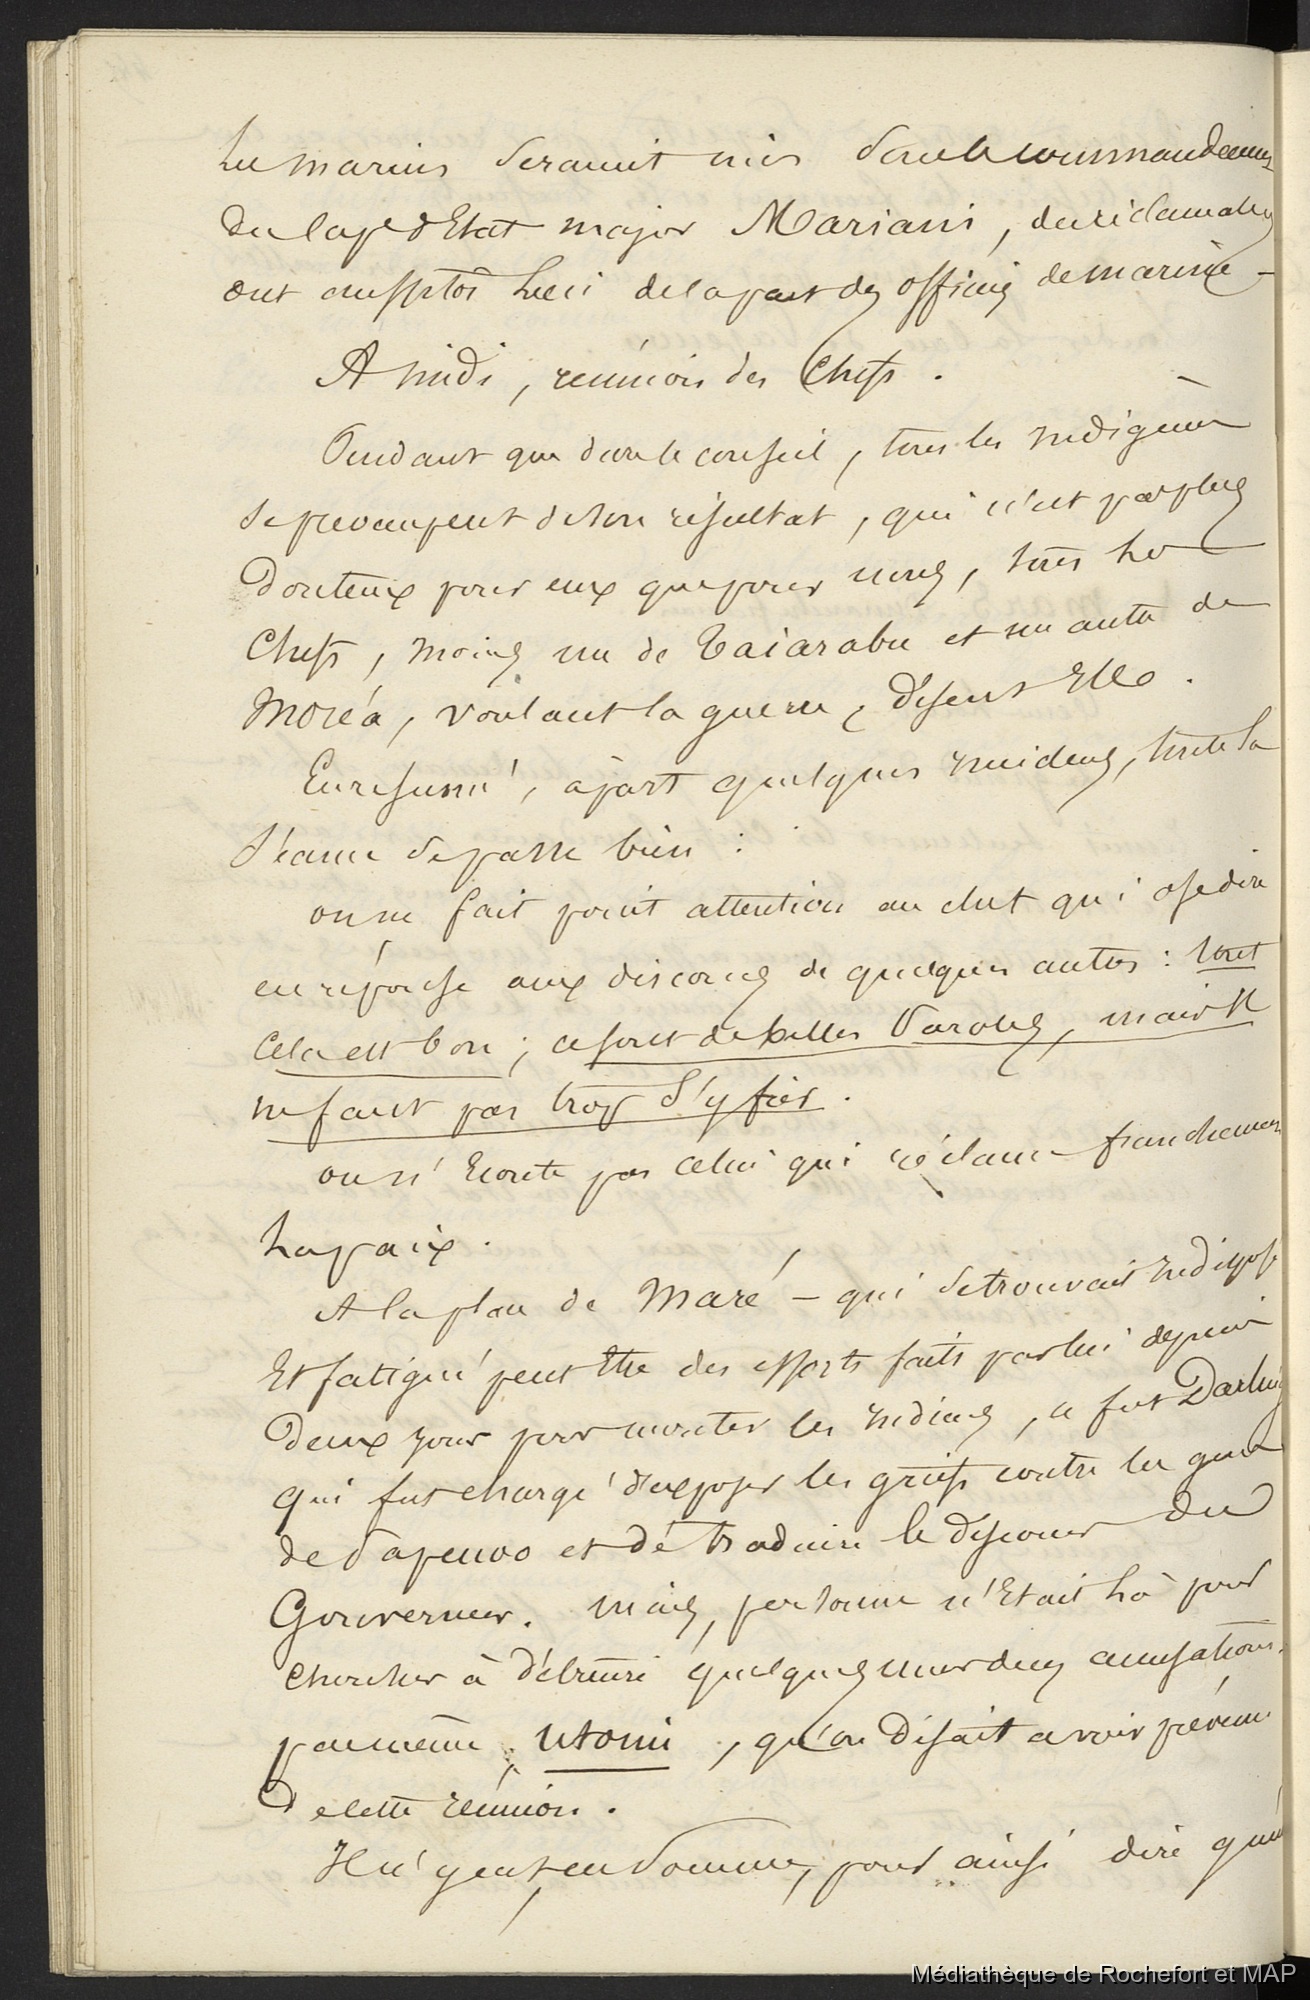 les marins seraient mis sous le commandement
du Cap.e d'Etat major Mariani, des réclamations
ont aussitôt lieu de la part des officiers de marine -
A midi, réunion des Chefs.
Pendant que dure le conseil, tous les indigènes
se préoccupent de son résultat, qui n'est pas plus
douteux pour eux que pour nous, tous les
Chefs, moins un de Taiarabu et un autre de
Moréa, voulant la guerre, disent Ello.
En résumé, à part quelques incidens, toute la
Séance se passe bien :
on ne fait point attention au chef qui ose dire
en réponse aux discours de quelques autres : tout
cela est bon ; ce sont de belles paroles, mais il
ne faut pas trop s'y fier.
on n'écoute pas celui qui réclame franchement
la paix.
A la place de Maré - qui se trouvait indisposé
et fatigué peut être des efforts faits par lui depuis
deux jours pour monter les indiens, ce fut Darling
qui fut chargé d'exposer les griefs contre les gens
de Papenoo et de traduire le discours du
Gouverneur. mais, personne n'était là pour
chercher à détruire quelques unes des accusations,
pas même, Utomi, qu'on disait avoir prévenu
de cette réunion.
Il n'y eut en somme, pour ainsi dire qu'un
Médiathèque de Rochefort et MAP